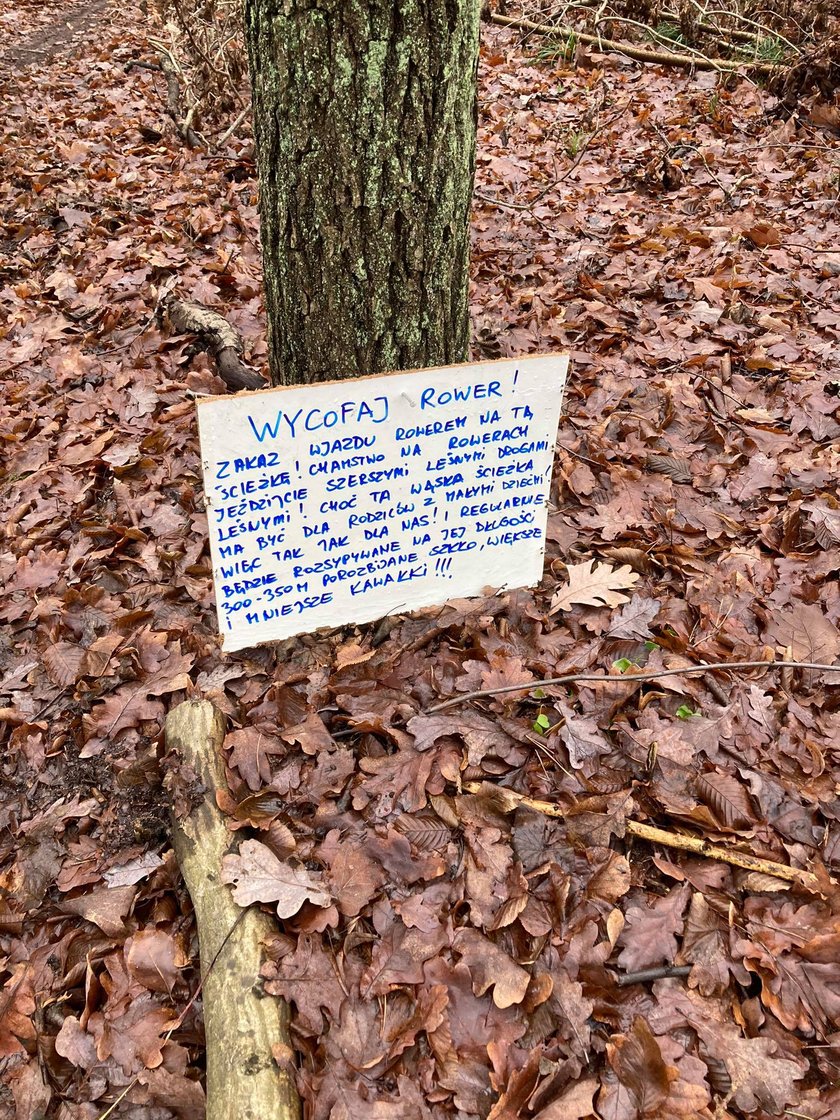 WYCOFAJ ROWER!
ZAKAZ WJAZDU ROWEREM NA TĄ
ŚCIEŻKĘ! CHAMSTWO NA ROWERACH
JEŹDZIJCIE SZERSZYMI LEŚNYMI DROGAMI
LEŚNYMI! CHOĆ TA WĄSKA ŚCIEŻKA
MA BYĆ DLA RODZICÓW Z MAŁYMI DZIEĆMI!
WIĘC TAK JAK DLA NAS! I REGULARNIE
BĘDZIE ROZSYPYWANE NA JEJ DŁUGOŚCI
300-350M POROZBIJANE SZKŁO, WIĘKSZE
I MNIEJSZE KAWAŁKI!!!